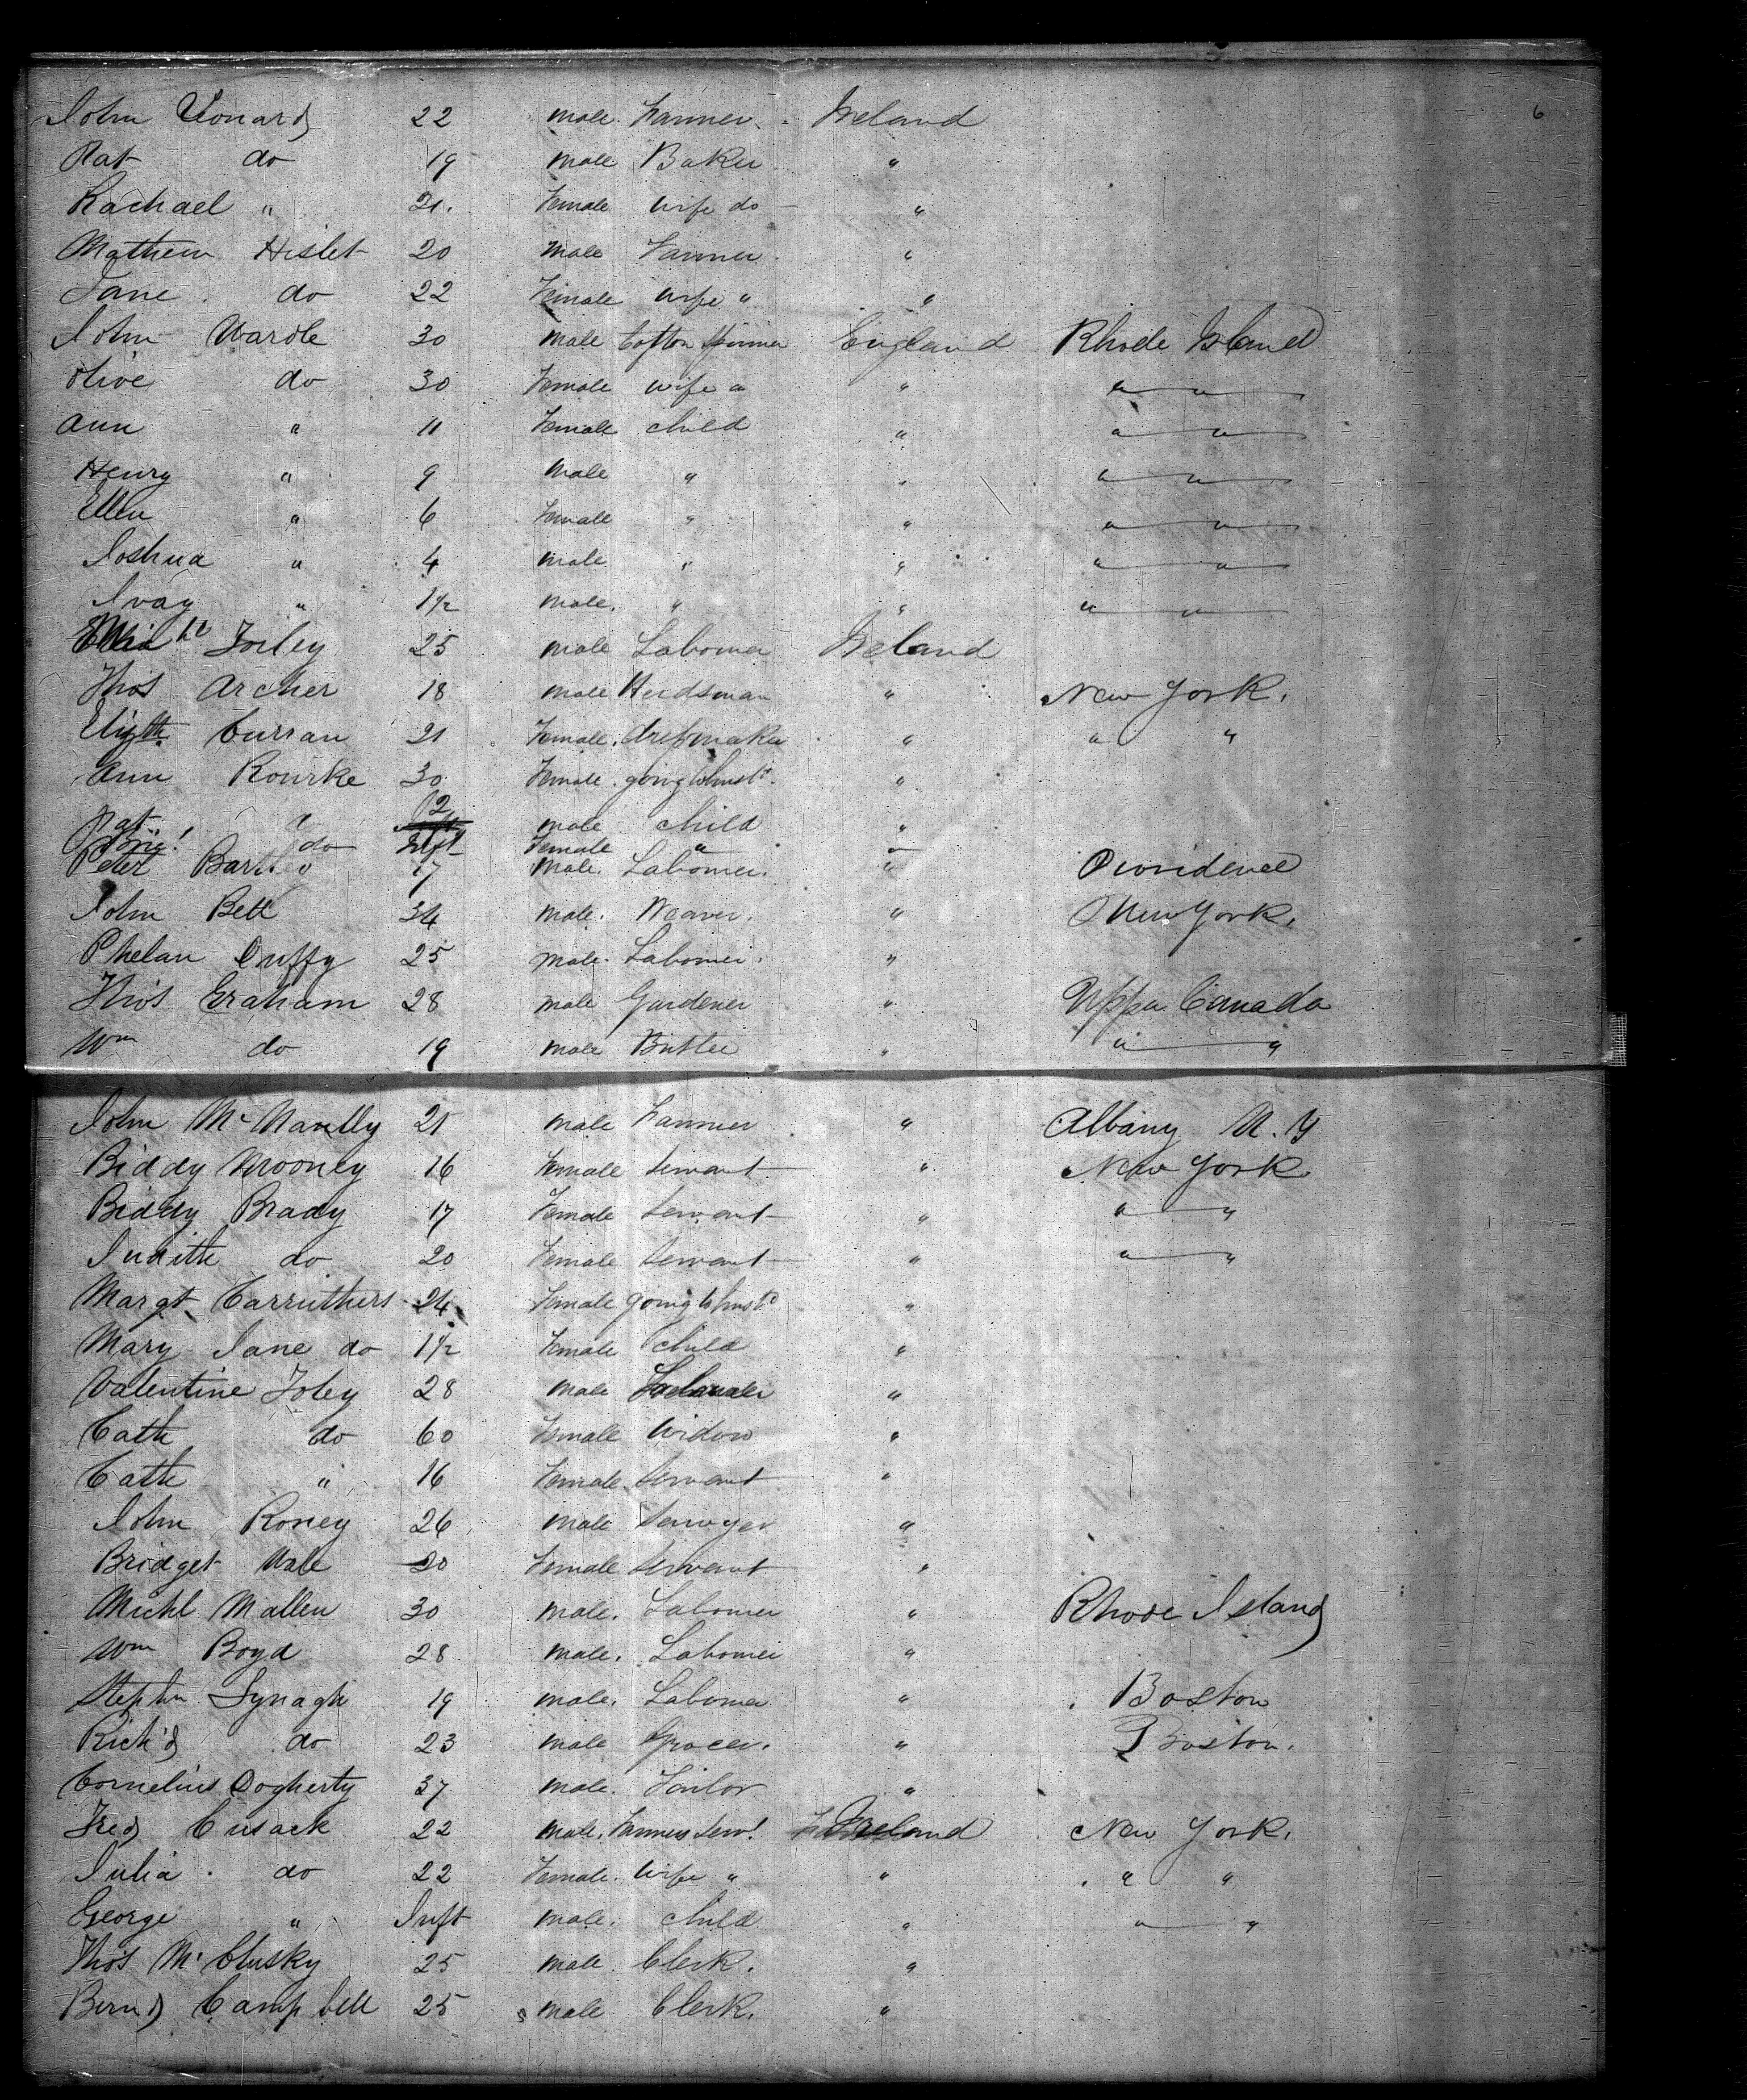 6
John Leonard 22 male Farmer Ireland
Pat do 19 male Baker "
Rachael " 21. Female wife do "
Mathew Hislet 20 male Farmer "
Jane do 22 Female wife " "
John Wardle 30 male Cotton Spinner England Rhode Island
Olive do 30 Female wife " " " "
Ann " 11 Female child " " "
Henry " 9 male " " " "
Ellen " 6 Female " " " "
Joshua " 4 male " " " "
" 1½ male. " " " "
Forley 25 male Labourer Ireland
Thos Archer 18 male Herdsman " New York.
Elizth Curran 21 Female. dressmaker " " "
Ann Rourke 30 Female. going to husbd. "
Pat " 12 male child "
do Inft Female " "
Peter 17 Male. Labourer. " Providence
John Bell 34 male. Weaver. " New York.
Phelan Duffy 25 male. Labourer. "
Thos Graham 28 male Gardener " Upper Canada
Wm do 19 male Butler " " "
John McNanlly 21 male Farmer " Albany N. Y
Biddy Mooney 16 Female Servant " New York
Biddy Brady 17 Female Servant " " "
Judith do 20 Female Servant " " "
Margt Carruthers 24 Female going to husbd "
Mary Jane do 1½ Female child "
Valentine Foley 28 male "
Cath do 60 Female Widow "
Cath " 16 Female Servant "
John Roney 26 male Sawyer "
Bridget 20 Female Servant "
Michl Mallen 30 male. Labourer " Rhode Island
Wm Boyd 28 male. Labourer "
Stephn Synagh 19 male. Labourer " Boston
Rich'd do 23 male Grocer. " Boston.
Cornelius Dogherty 37 male. Tailor "
Fred Cusack 22 male. Farmers Servt. Ireland New York.
Julia do 22 Female. Wife " " " "
George " Inft male. child " " "
Thos McClusky 25 male. Clerk. "
Bernd Campbell 25 male Clerk. "